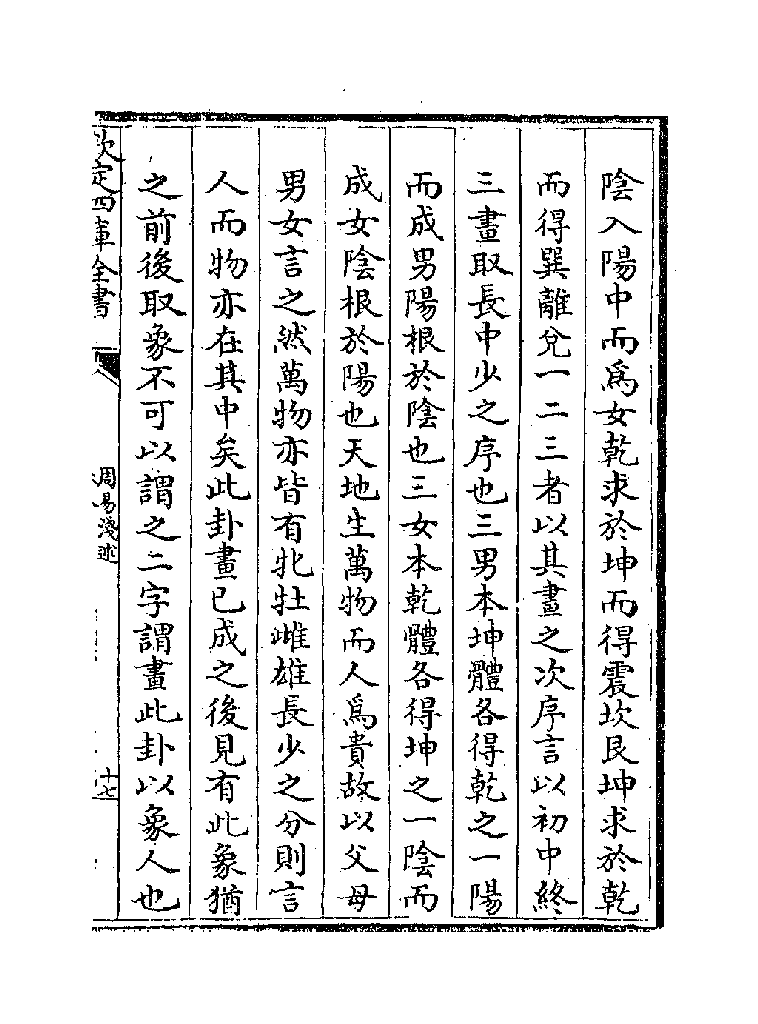 陰入陽中而為女乾求於坤而得震坎艮坤求於乾
而得巽離兌一二三者以其畫之次序言以初中終
三畫取長中少之序也三男本坤體各得乾之一陽
而成男陽根於陰也三女本乾體各得坤之一陰而
成女陰根於陽也天地生萬物而人為貴故以父母
男女言之然萬物亦皆有牝牡雌雄長少之分則言
人而物亦在其中矣此卦畫已成之後見有此象猶
之前後取象不可以謂之二字謂畫此卦以象人也
欽定四庫全書
周易淺述
十七